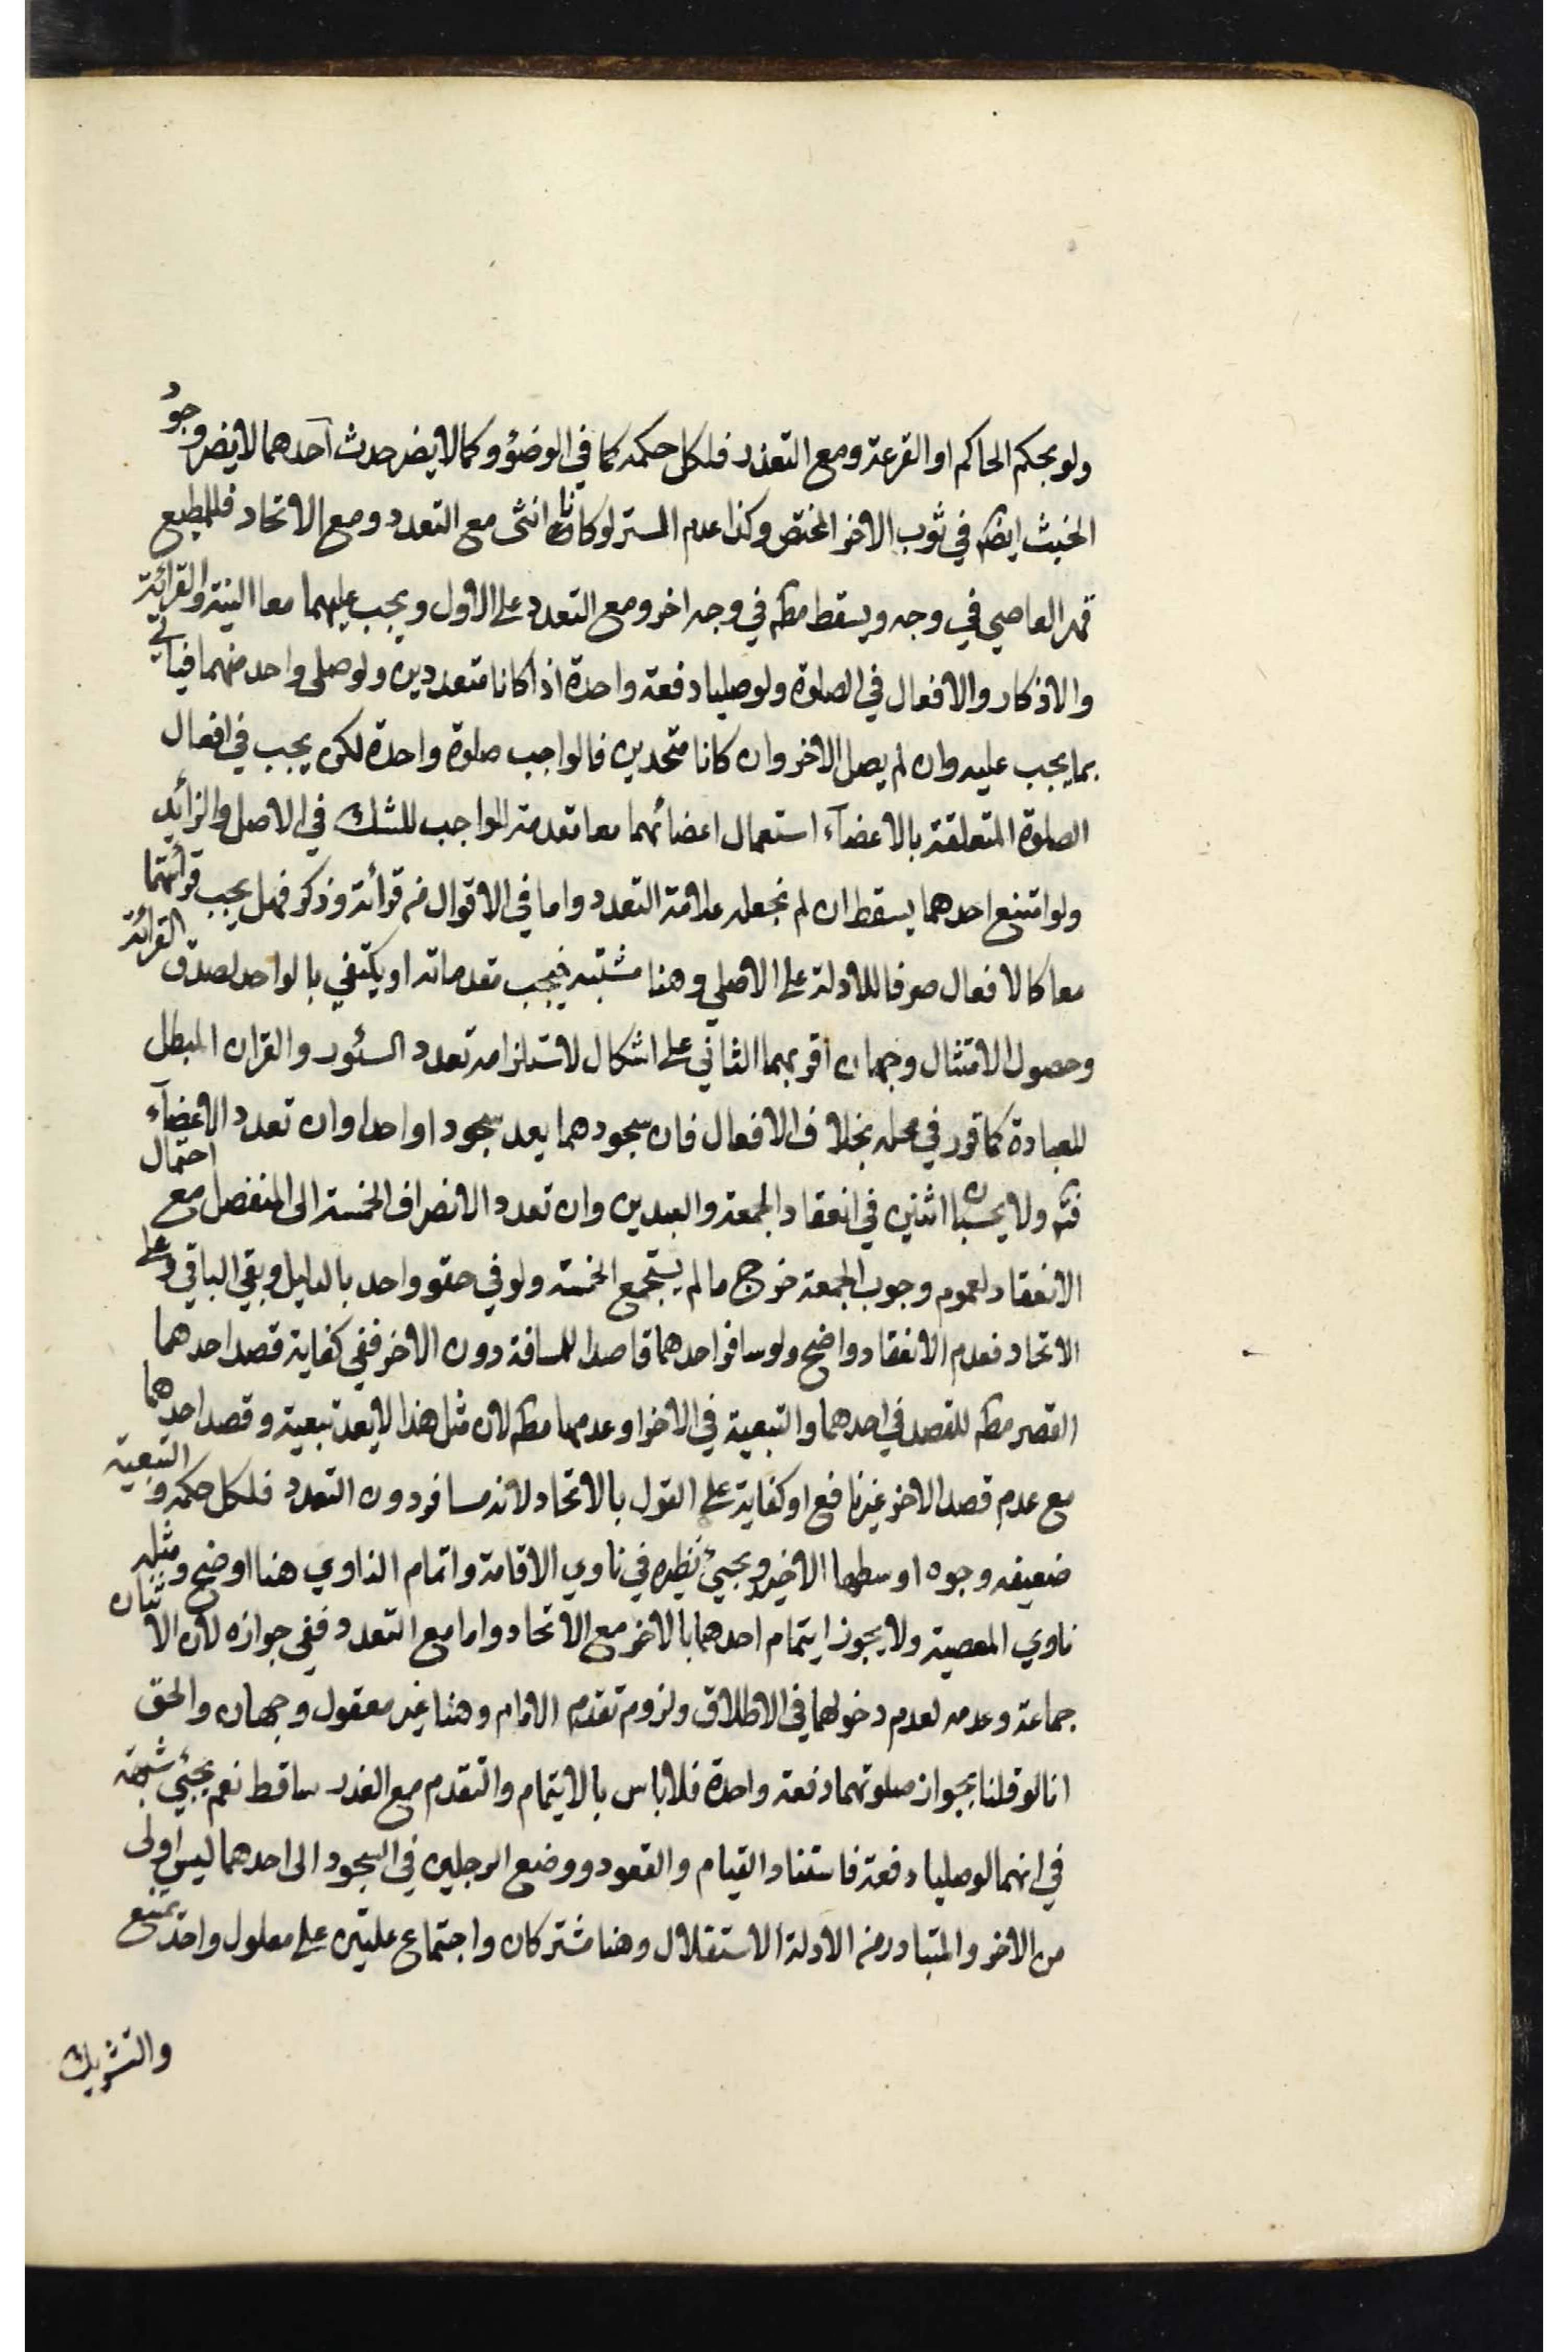 ولو بحكم الحاكم او القرعة ومع التعذر فلكل حكمه كما في الوضوء وكما لا يضر حدث احدهما لا يضر وجود
الخبث ايضه في ثوب الاخر المختص وكذا عدم الستر لو كانا انثى مع التعدد ومع الاتحاد فللمطيع
قهر العاصي في وجه ويسقط مطه في وجه اخر ومع التعدد على الاول ويجب عليهما معا النية والقرائة
والاذكار والافعال في الصلوة ولو صليا دفعة واحدة اذا كانا متعددين ولو صلى واحد منهما فيأتي
بما يجب عليه وان لم يصل الاخر وان كانا متحدين فالواجب صلوة واحدة لكن يجب في افعال
الصلوة المتعلقة بالاعضآء استعمال اعضائهما معا مقدمة للواجب للشك في الاصل والزائد
ولو امتنع احدهما يسقط ان لم نجعله علامة التعدد واما في الاقوال من قرائة وذكر فهل يجب قرائتهما
معا كالافعال صرفا للادلة على الاصلي وهنا مشتبه فيجب مقدماته او يكتفي بالواحد لصدق القرائة
وحصول الامتثال وجهان اقربهما الثاني على اشكال لاستلزامه تعدد السور والقران المبطل
للعبادة كما قرر في محله بخلاف الافعال فان سجودهما يعد سجودا واحدا وان تعدد الاعضآء
فتم ولا يحسبان اثنين في انعقاد الجمعة والعيدين وان تعدد الانصراف الخمسة الى المنفصل مع احتمال
الانعقاد لعموم وجوب الجمعة خرج ما لم يستجمع الخمسة ولو في حقو واحد بالدليل وبقي الباقي وعلى
الاتحاد فعدم الانعقاد واضح ولو سافر احدهما قاصدا للمسافة دون الاخر ففي كفاية قصد احدهما
القصر مطه للقصد في احدهما والتبعية في الاخر او عدمها مطه لان مثل هذا لا يعد تبعية وقصد احدهما
مع عدم قصد الاخر غير نافع او كفاية على القول بالاتحاد لانه مسافر دون التعدد فلكل حكمه والتبعية
ضعيفه وجوه اوسطها الاخير ويجيئ نظيره في ناوي الاقامة واتمام الناوي هنا اوضح ومثله
ناوي المعصية ولا يجوز ايتمام احدهما بالاخر مع الاتحاد واما مع التعدد ففي جوازه لان الاثنان
جماعة وعدمه لعدم دخولهما في الاطلاق ولزوم تقدم الامام وهنا غير معقول وجهان والحق
انا لو قلنا بجواز صلوتهما دفعة واحدة فلا باس بالايتمام والتقدم مع العذر ساقط نعم يجئي شبهة
في انهما لو صليا دفعة فاستناد القيام والقعود ووضع الرجلين في السجود الى احدهما ليس اولى
من الاخر والمتبادر من الادلة الاستقلال وهنا مشتركان واجتماع علتين على معلول واحد يمتنع
والتشريك